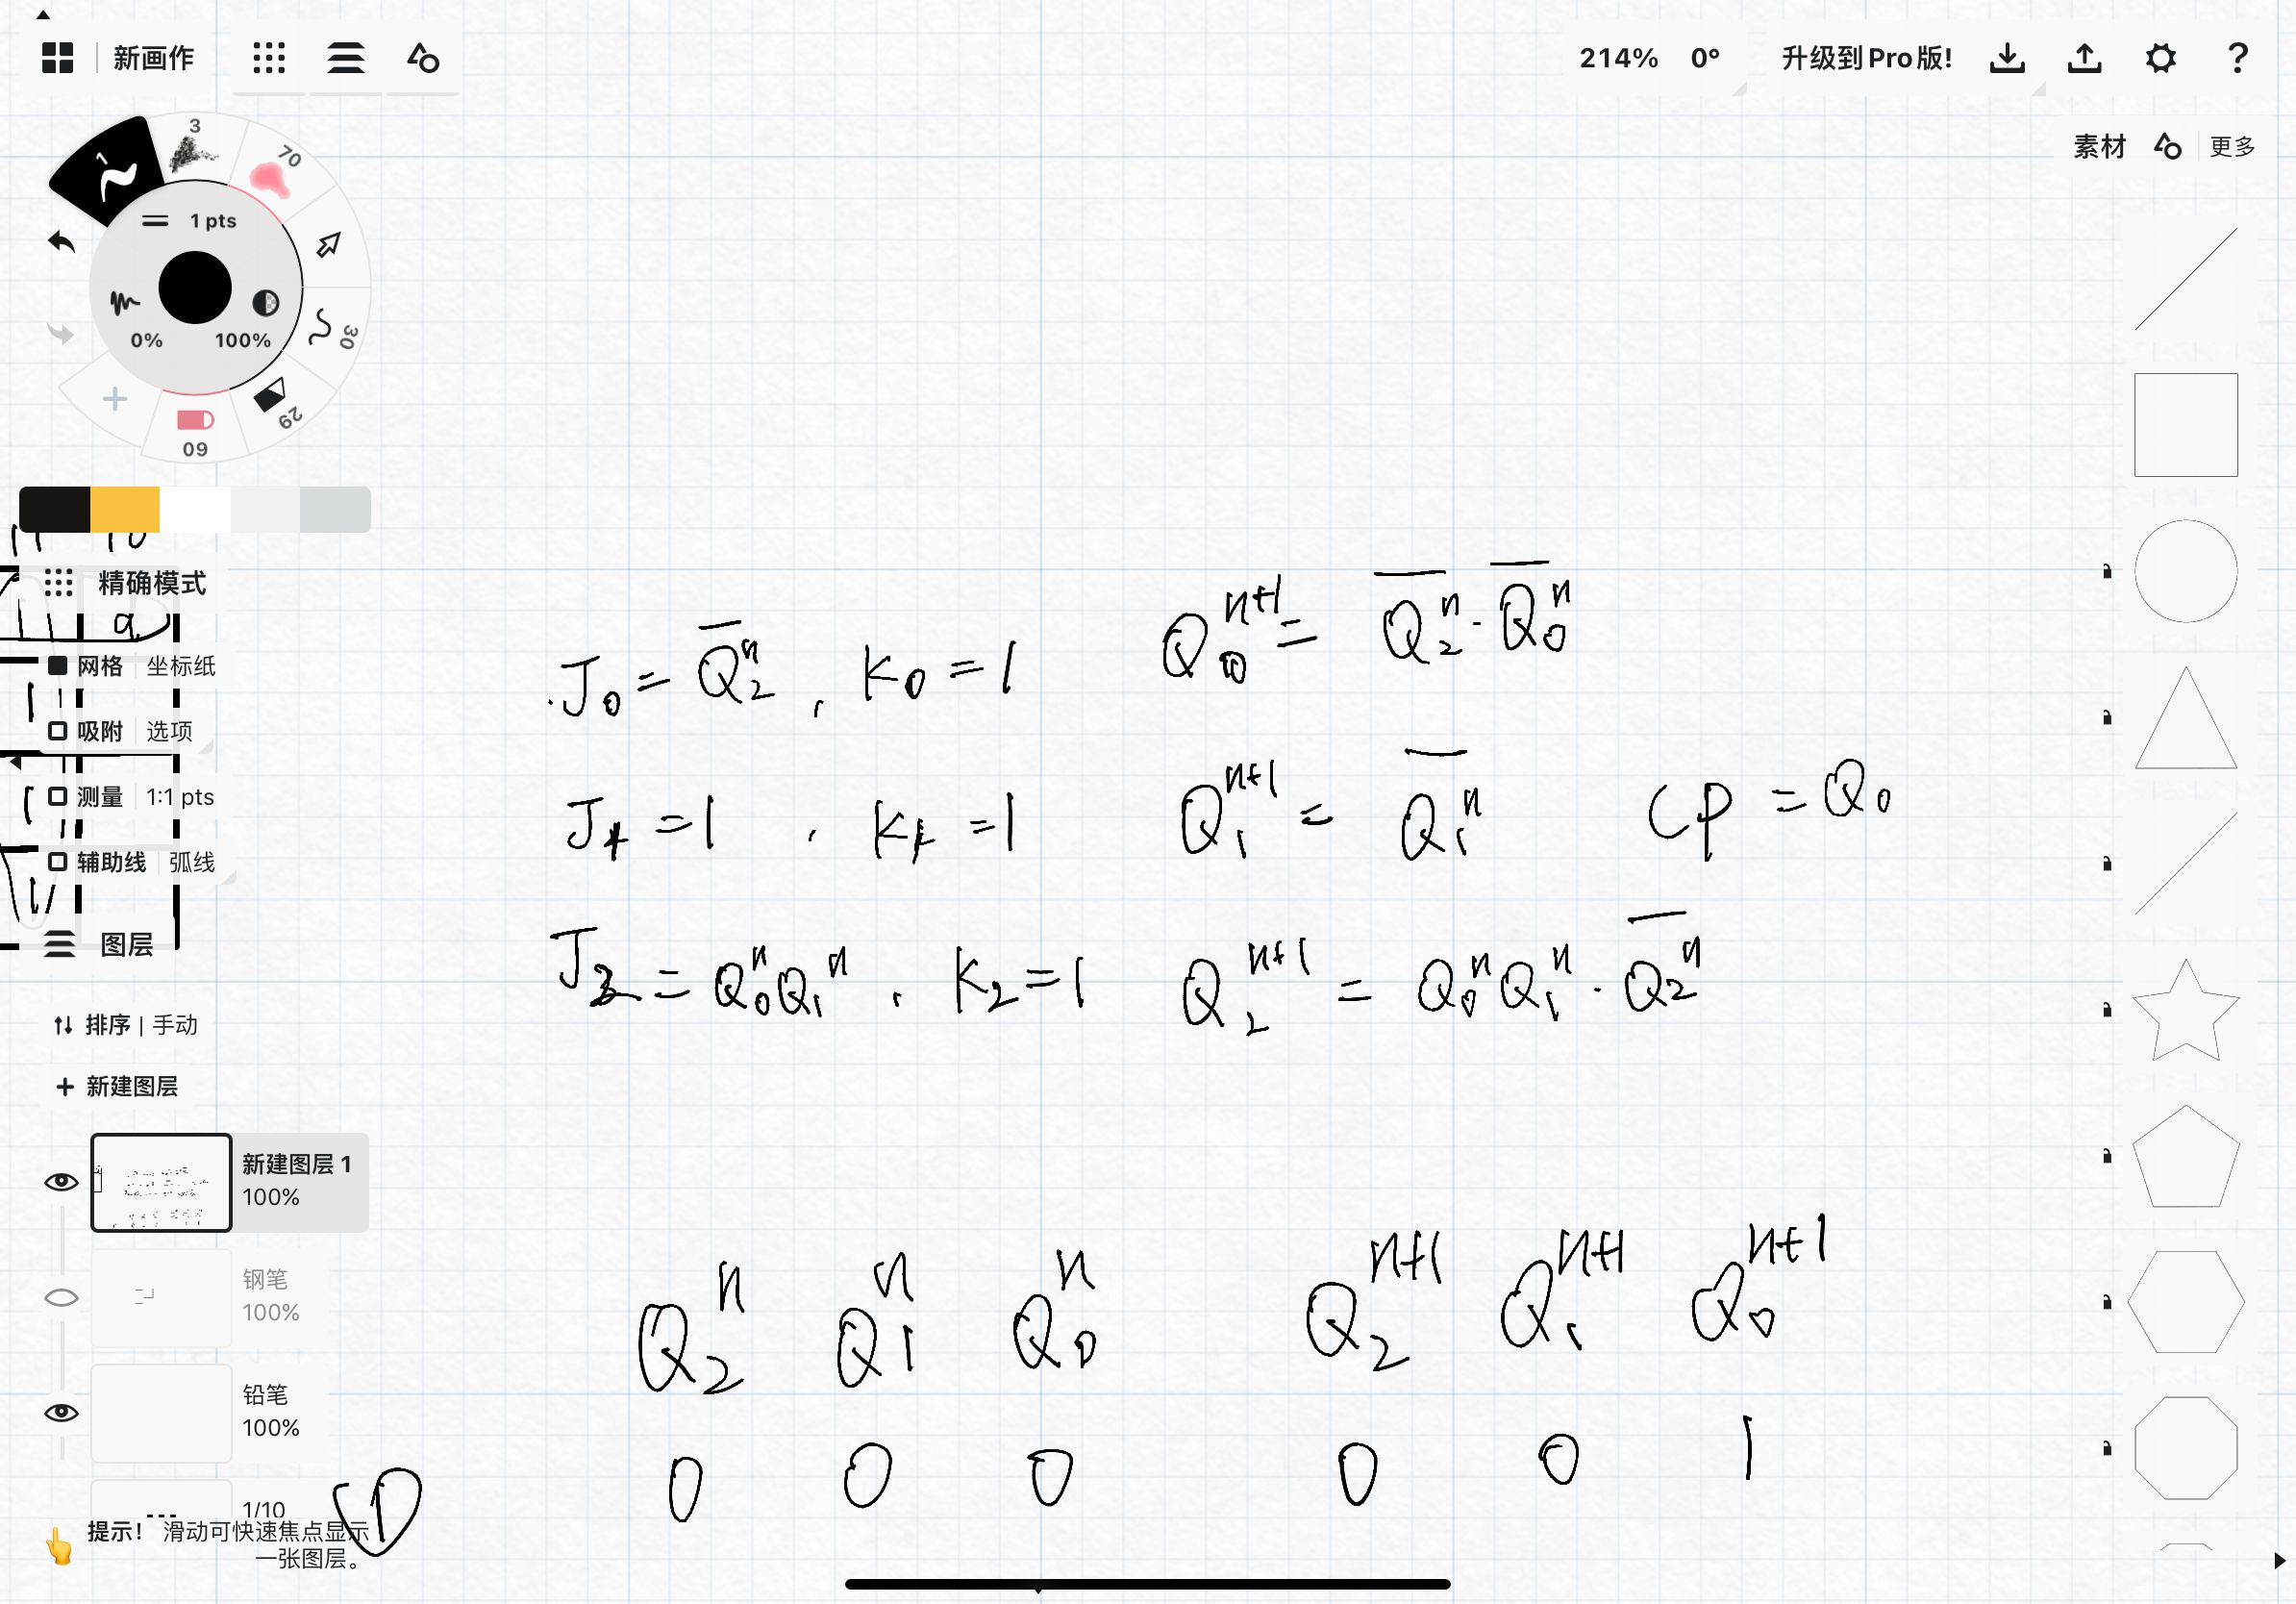 新画作
214% 0° 升级到 Pro 版! ?
素材 更多
1 3 70
1 pts
30
0% 100%
29
60
11 10
精确模式
网格 坐标纸
吸附 选项
测量 1:1 pts
辅助线 弧线
图层
排序 | 手动
+ 新建图层
新建图层 1
100%
钢笔
100%
铅笔
100%
1/10
提示! 滑动可快速焦点显示
一张图层。
J₀ = Q̅₂ⁿ , K₀ = 1 Q₀ⁿ⁺¹ = Q̅₂ⁿ · Q̅₀ⁿ
J₁ = 1 , K₁ = 1 Q₁ⁿ⁺¹ = Q̅₁ⁿ CP = Q₀
J₂ = Q₀ⁿQ₁ⁿ , K₂ = 1 Q₂ⁿ⁺¹ = Q₀ⁿQ₁ⁿ · Q̅₂ⁿ
Q₂ⁿ Q₁ⁿ Q₀ⁿ Q₂ⁿ⁺¹ Q₁ⁿ⁺¹ Q₀ⁿ⁺¹
① 0 0 0 0 0 1